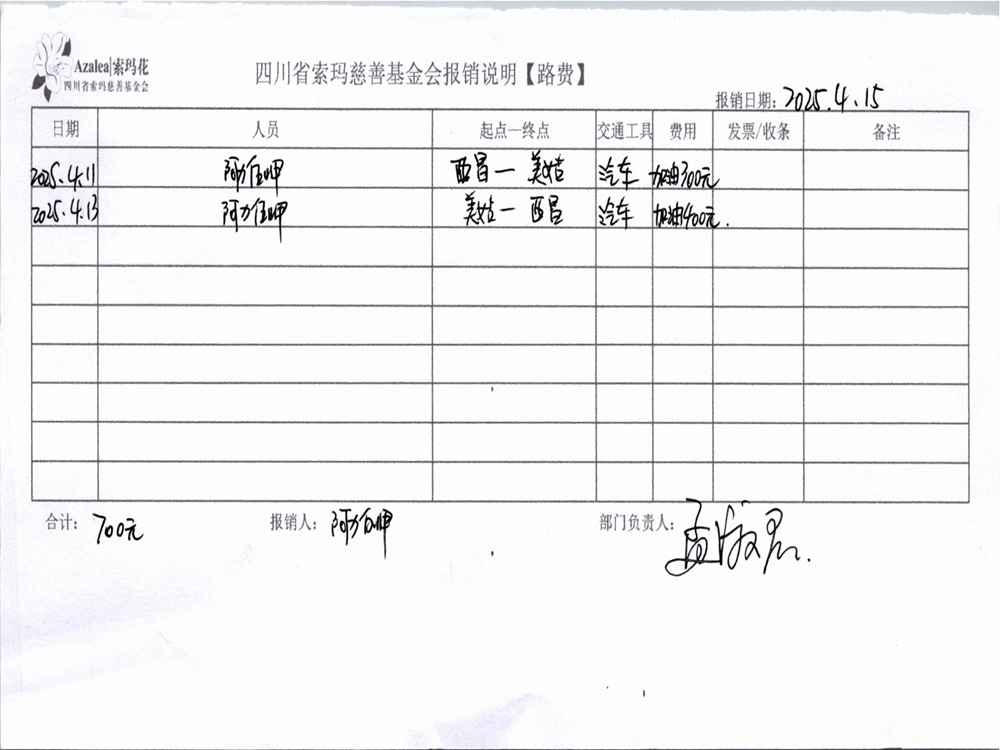 Azalea|索玛花
四川省索玛慈善基金会
四川省索玛慈善基金会报销说明【路费】
报销日期: 2025.4.15
日期 人员 起点—终点 交通工具 费用 发票/收条 备注
2025.4.11 阿力伍呷 西昌—美姑 汽车 加油300元
2025.4.13 阿力伍呷 美姑—西昌 汽车 加油400元.
合计: 700元 报销人: 阿力伍呷 部门负责人: